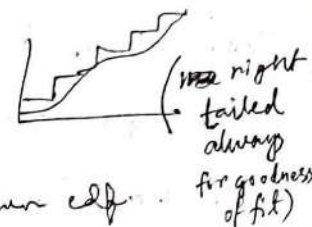 (right
tailed
always
for goodness
of fit)
cdf.